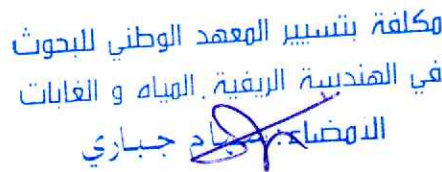 مكلفة بتسيير المعهد الوطني للبحوث
في الهندسة الريفية المياه و الغابات
الامضاء: جباري